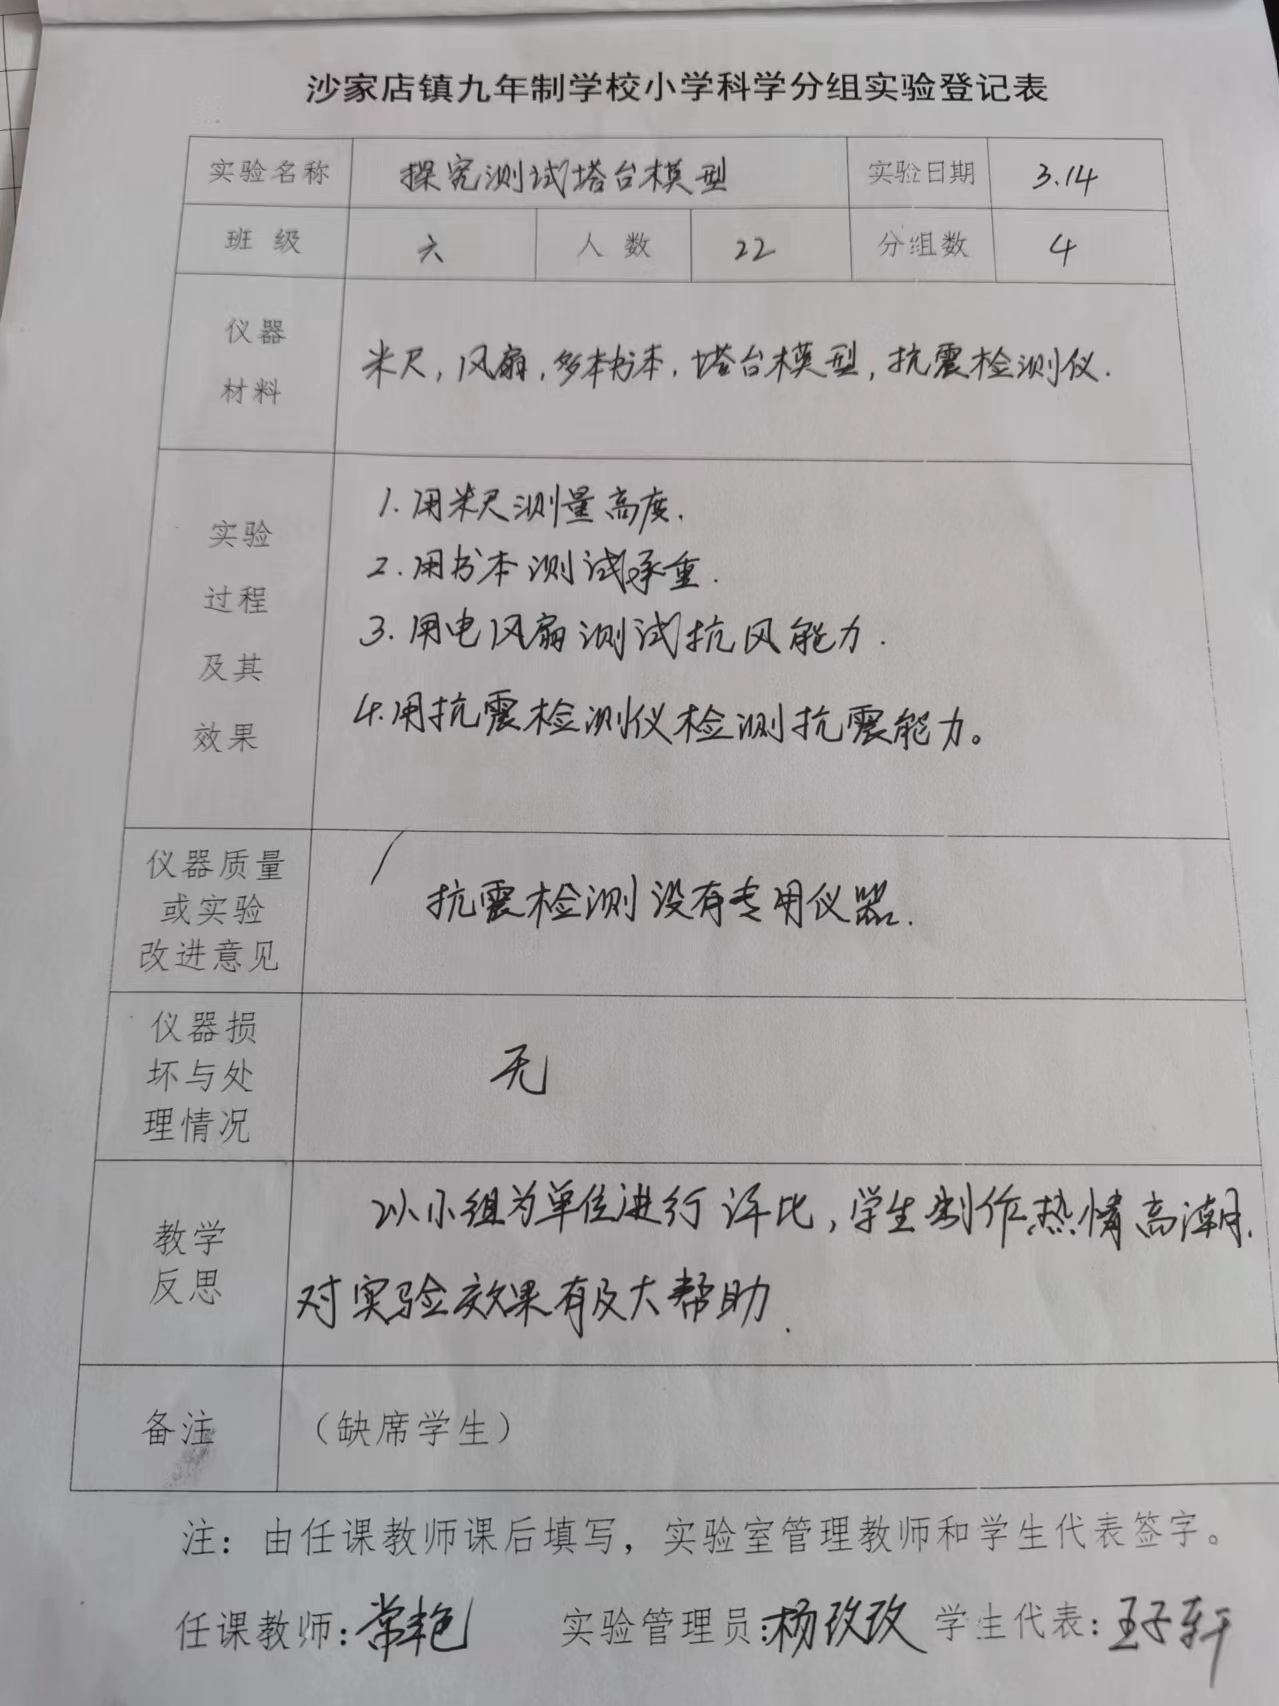 沙家店镇九年制学校小学科学分组实验登记表
实验名称 探究测试塔台模型 实验日期 3.14
班 级 六 人 数 22 分组数 4
仪器
材料
米尺,风扇,多本书本,塔台模型,抗震检测仪.
实验
过程
及其
效果
1.用米尺测量高度.
2.用书本测试承重.
3.用电风扇测试抗风能力.
4.用抗震检测仪检测抗震能力。
仪器质量
或实验
改进意见
抗震检测没有专用仪器.
仪器损
坏与处
理情况
无
教学
反思
以小组为单位进行评比,学生制作热情高潮.
对实验效果有及大帮助.
备注 (缺席学生)
注:由任课教师课后填写,实验室管理教师和学生代表签字。
任课教师:常艳 实验管理员:杨改改 学生代表:王子轩